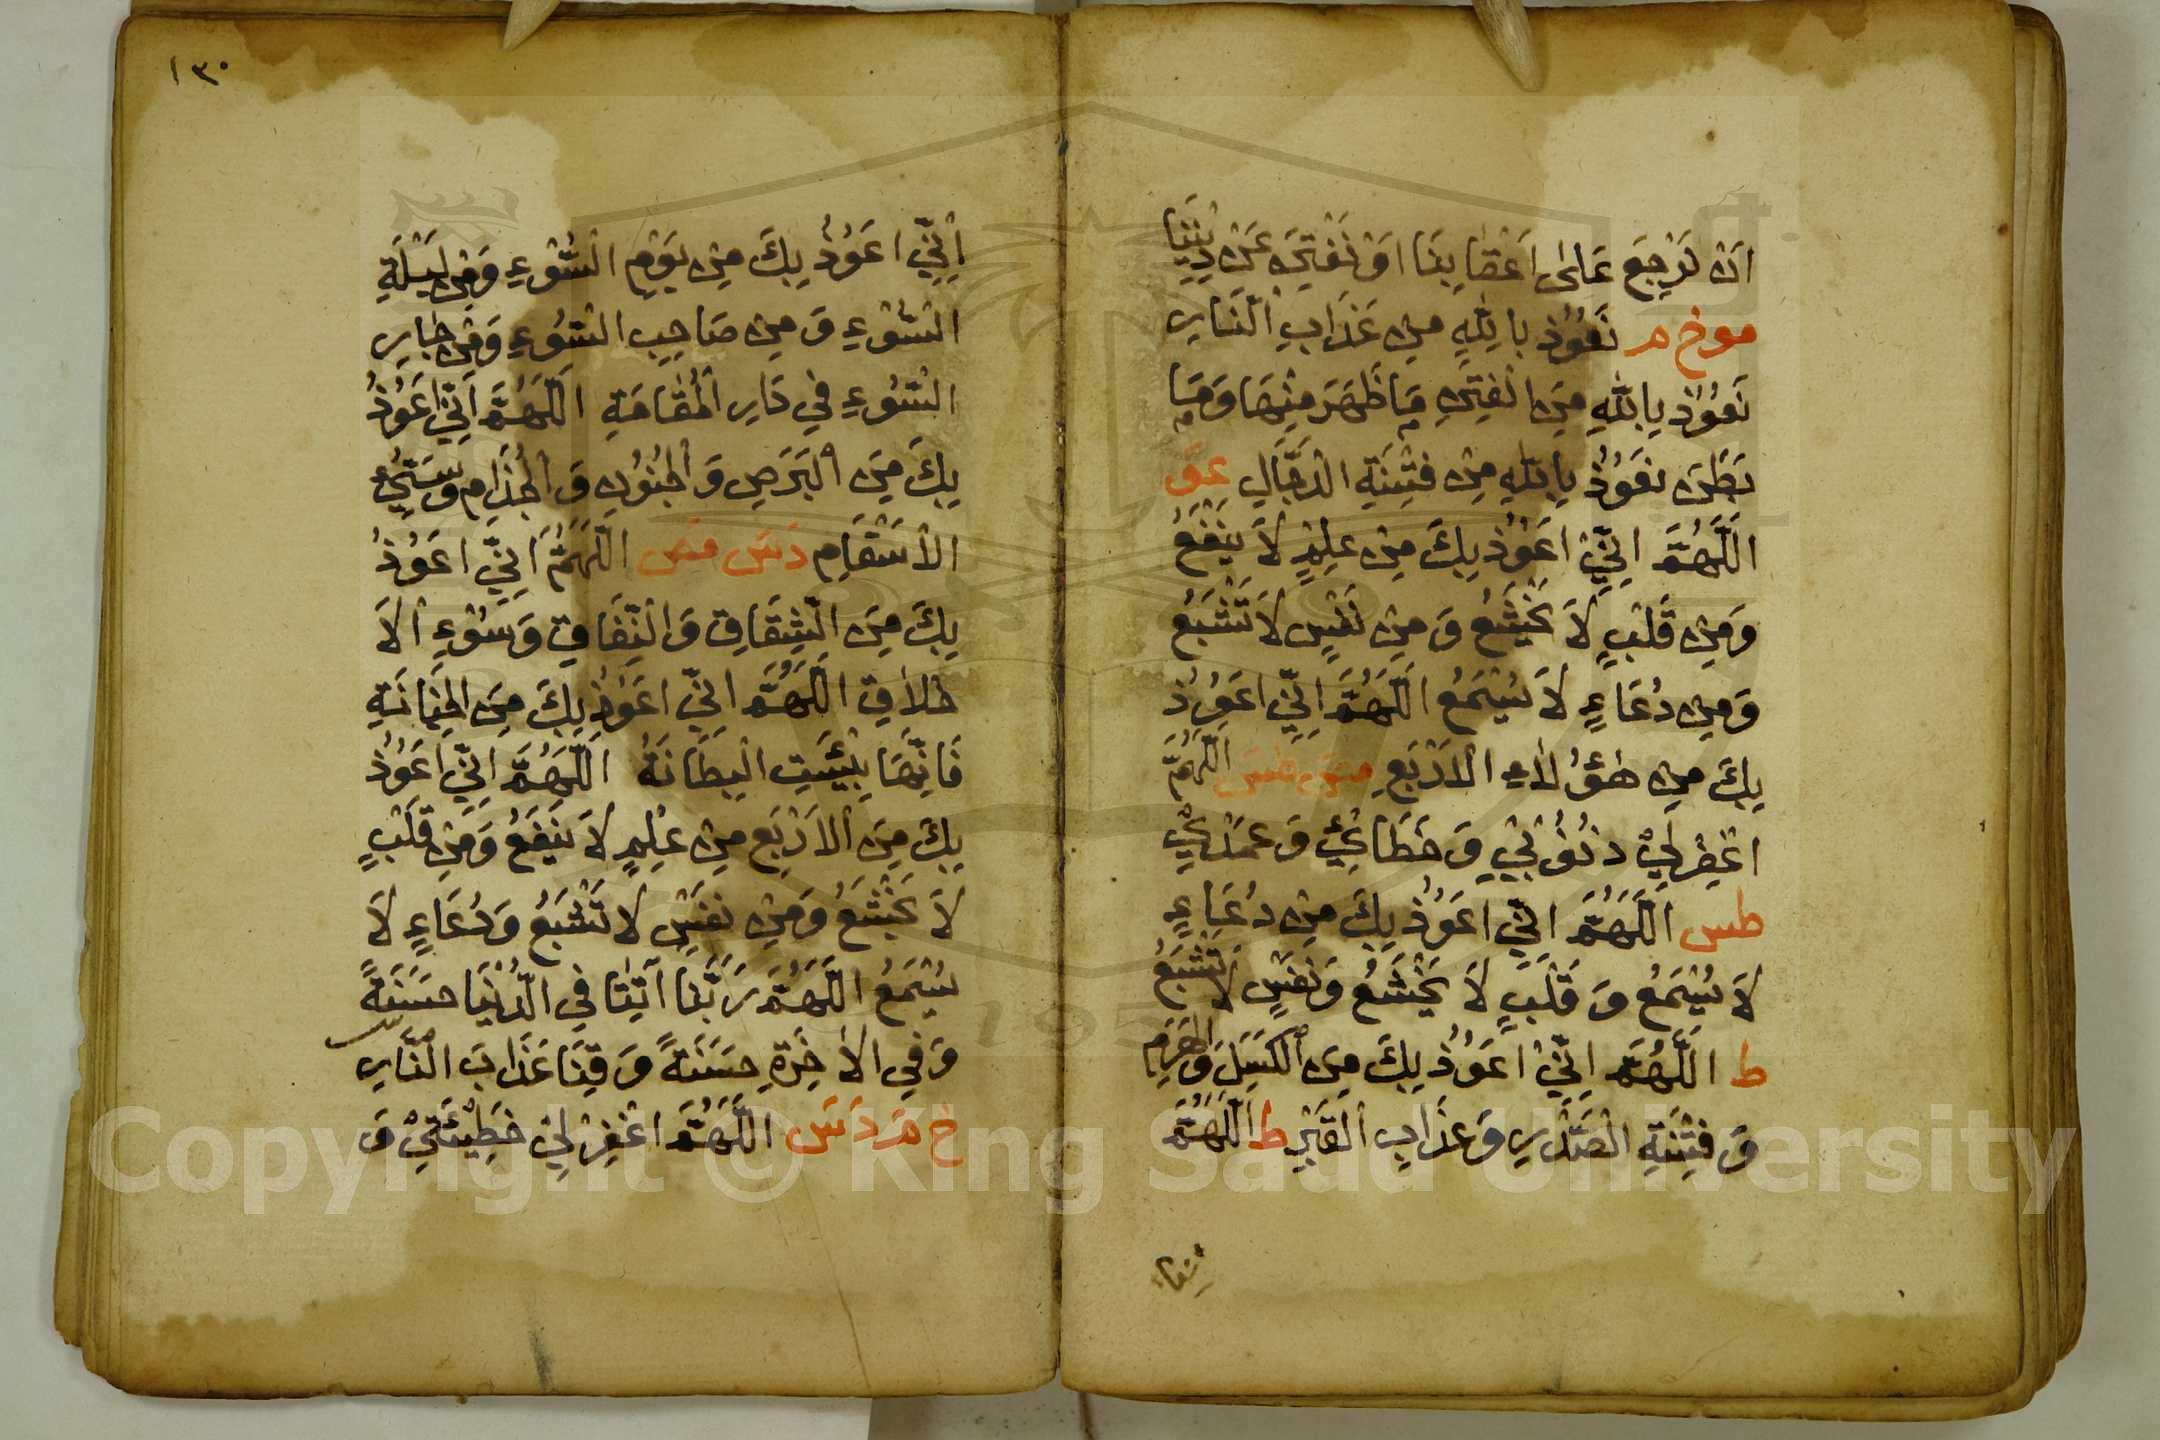 اَنْ نَرْجِعَ عَلىٰ اَعْقَابِنَا اَوْ نُفْتَنَ عَنْ دِيْنِنَا
مو خ م نَعُوْذُ بِاللّٰهِ مِنْ عَذَابِ النَّارِ
نَعُوْذُ بِاللّٰهِ مِنَ الْفِتَنِ مَا ظَهَرَ مِنْهَا وَمَا
بَطَنَ نَعُوْذُ بِاللّٰهِ مِنْ فِتْنَةِ الدَّجَّالِ عو
اَللّٰهُمَّ اِنِّيْ اَعُوْذُ بِكَ مِنْ عِلْمٍ لَا يَنْفَعُ
وَمِنْ قَلْبٍ لَا يَخْشَعُ وَمِنْ نَفْسٍ لَا تَشْبَعُ
وَمِنْ دُعَاءٍ لَا يُسْمَعُ اَللّٰهُمَّ اِنِّيْ اَعُوْذُ
بِكَ مِنْ هٰؤُلَاءِ الْاَرْبَعِ مص طس اَللّٰهُمَّ
اغْفِرْ لِيْ ذُنُوْبِيْ وَخَطَائِيْ وَعَمْدِيْ
طس اَللّٰهُمَّ اِنِّيْ اَعُوْذُ بِكَ مِنْ دُعَاءٍ
لَا يُسْمَعُ وَقَلْبٍ لَا يَخْشَعُ وَنَفْسٍ لَا تَشْبَعُ
ط اَللّٰهُمَّ اِنِّيْ اَعُوْذُ بِكَ مِنَ الْكَسَلِ وَالْهَرَمِ
وَفِتْنَةِ الصَّدْرِ وَعَذَابِ الْقَبْرِ ط اَللّٰهُمَّ
١٣٠
اِنِّيْ اَعُوْذُ بِكَ مِنْ يَوْمِ السُّوْءِ وَمِنْ لَيْلَةِ
السُّوْءِ وَمِنْ صَاحِبِ السُّوْءِ وَمِنْ جَارِ
السُّوْءِ فِيْ دَارِ الْمُقَامَةِ اَللّٰهُمَّ اِنِّيْ اَعُوْذُ
بِكَ مِنَ الْبَرَصِ وَالْجُنُوْنِ وَالْجُذَامِ وَسَيِّئِ
الْاَسْقَامِ د س مص اَللّٰهُمَّ اِنِّيْ اَعُوْذُ
بِكَ مِنَ الشِّقَاقِ وَالنِّفَاقِ وَسُوْءِ الْاَ
خْلَاقِ اَللّٰهُمَّ اِنِّيْ اَعُوْذُ بِكَ مِنَ الْخِيَانَةِ
فَاِنَّهَا بِئْسَتِ الْبِطَانَةُ اَللّٰهُمَّ اِنِّيْ اَعُوْذُ
بِكَ مِنَ الْاَرْبَعِ مِنْ عِلْمٍ لَا يَنْفَعُ وَمِنْ قَلْبٍ
لَا يَخْشَعُ وَمِنْ نَفْسٍ لَا تَشْبَعُ وَدُعَاءٍ لَا
يُسْمَعُ اَللّٰهُمَّ رَبَّنَا اٰتِنَا فِي الدُّنْيَا حَسَنَةً
وَفِي الْاٰخِرَةِ حَسَنَةً وَقِنَا عَذَابَ النَّارِ
خ م د س اَللّٰهُمَّ اغْفِرْ لِيْ خَطِيْئَتِيْ وَ
Copyright © King Saud University